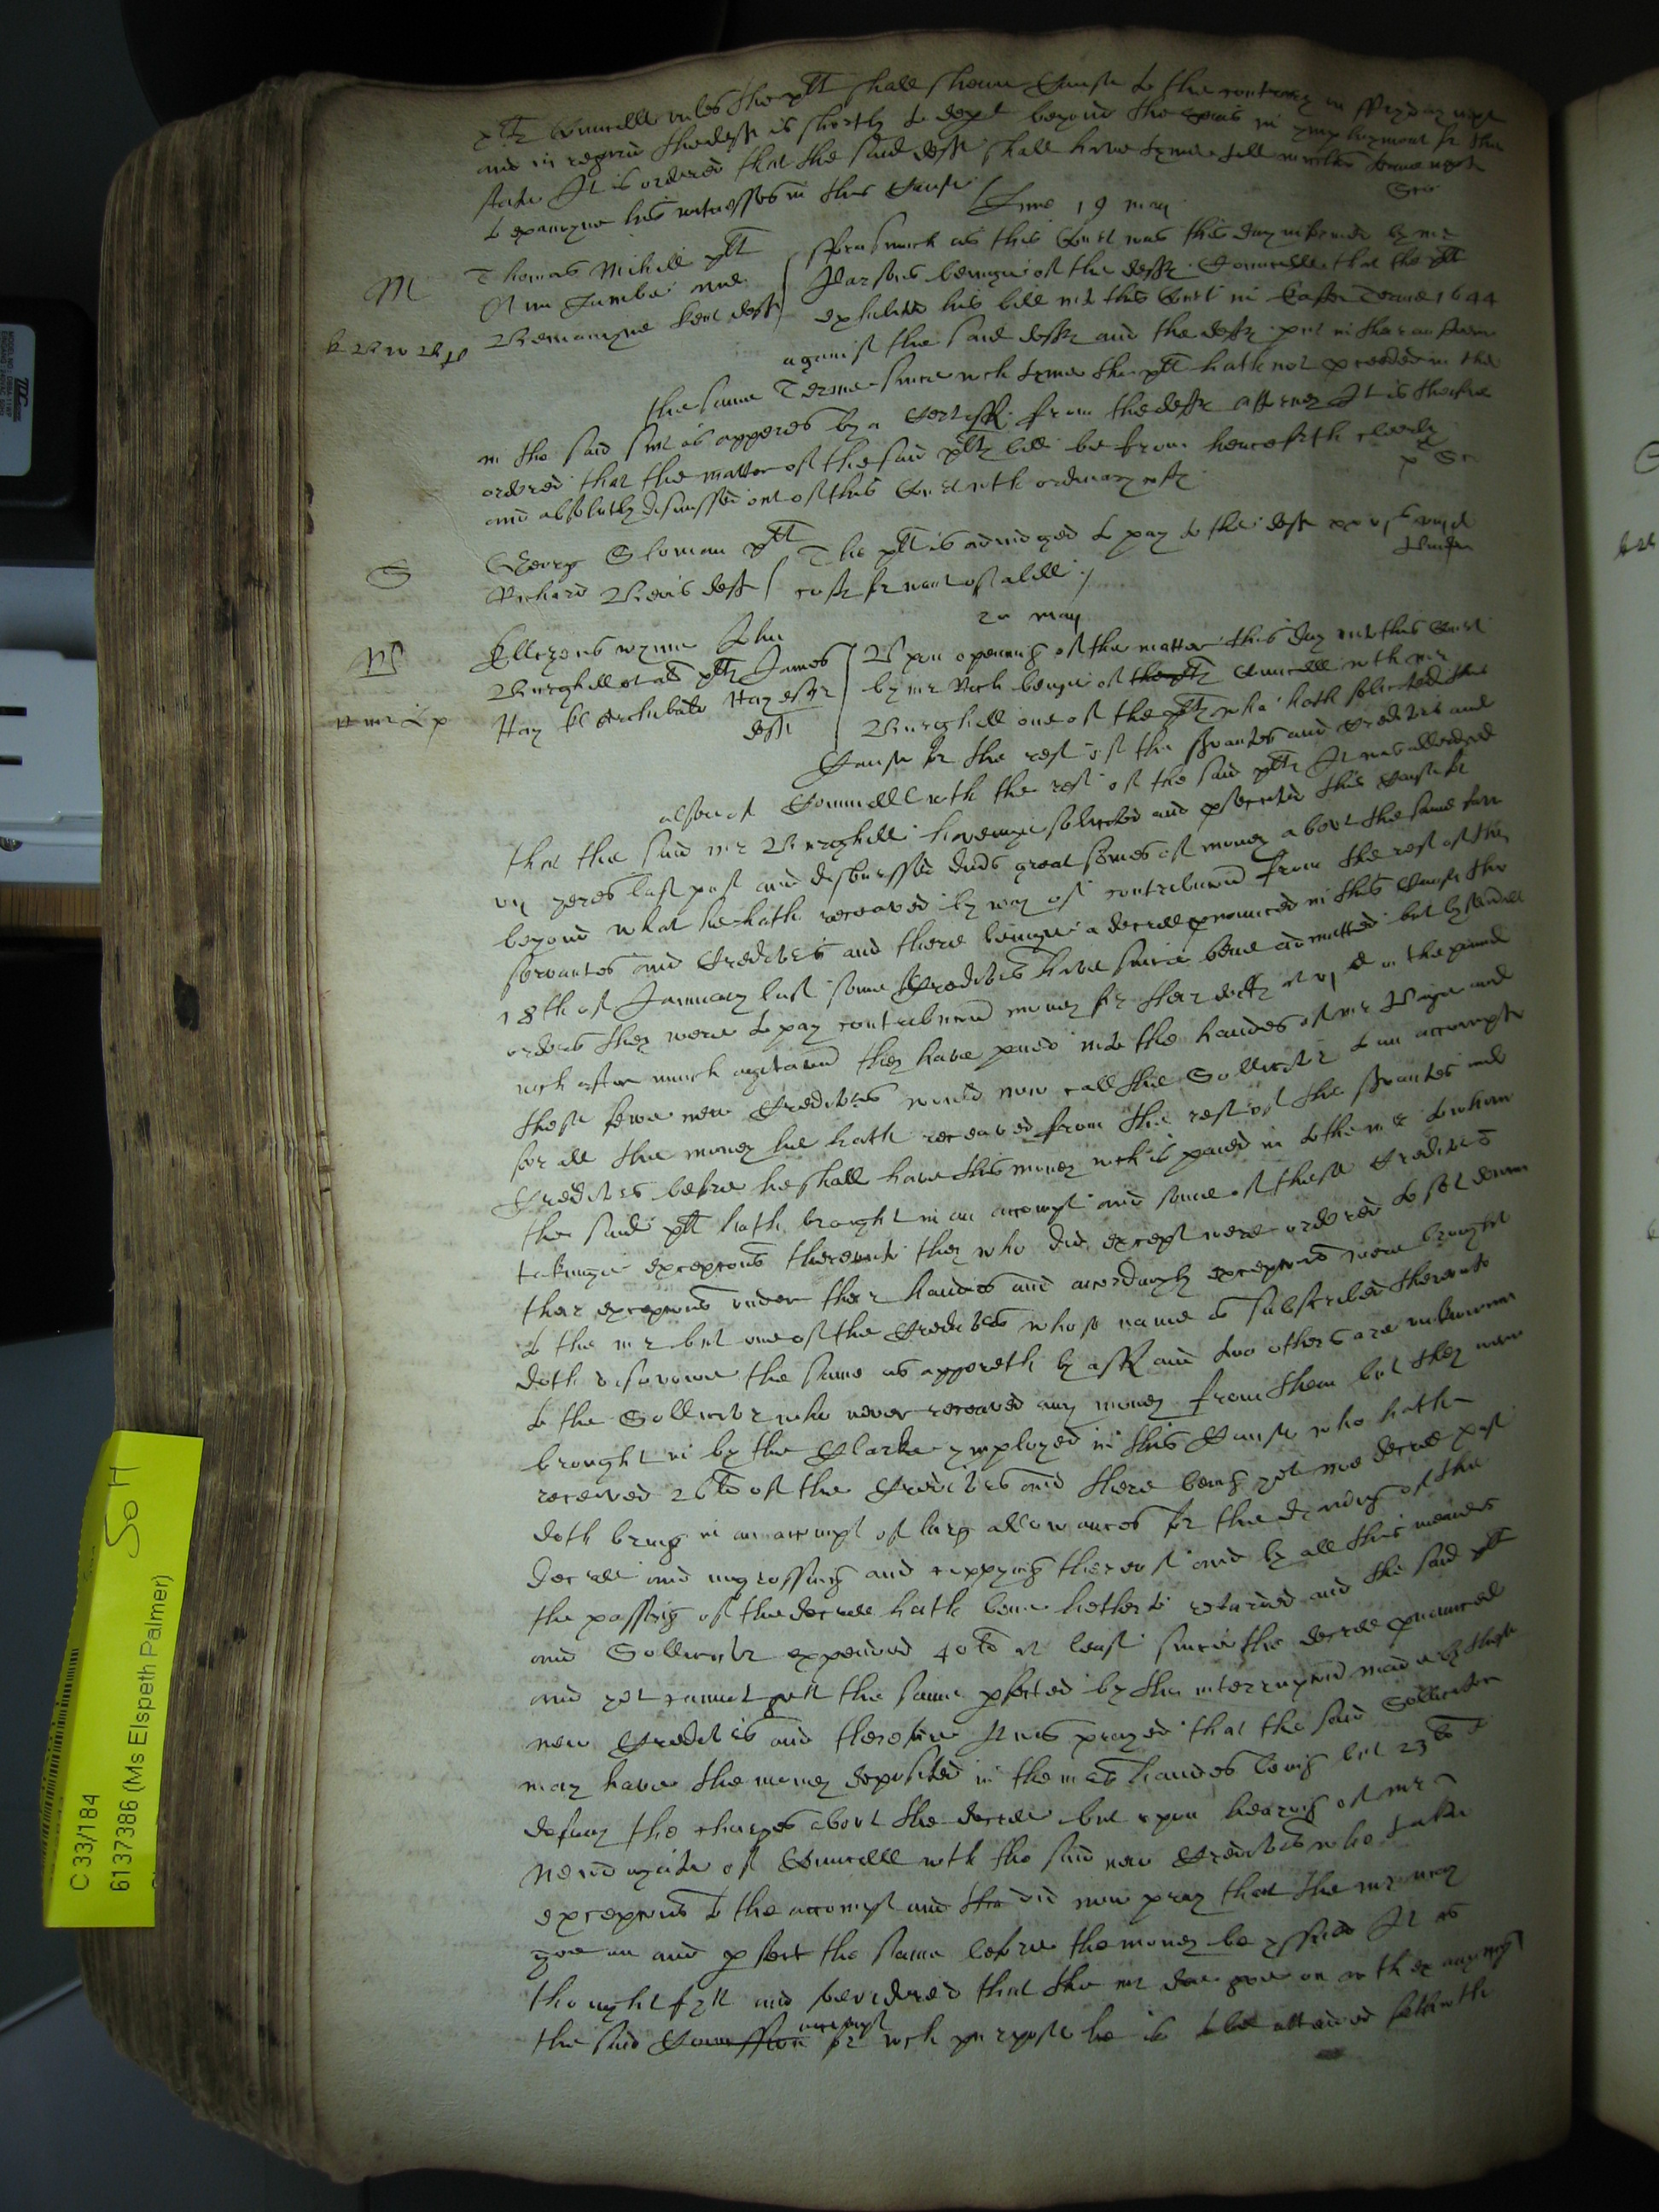 plts Councell unles the plt shall shewe Cause to the contrary on ffryday next
and in regard the deft is shortly to dept beyond the seas in ymployment for the
state It is ordered that the said deft shall have tyme till terme next
to examyne his witnesses in this Cause
19 may
M
Thomas Mihill plt
fforasmuch as this Court was this day informed by mr
and
Parsons beinge of the defts Councell that the plt
Beniamyne deft
exhibited his bill into this Court in Easter Terme 1644
against the said defts and the defts put in their answere
the same Terme since wch tyme the plt hath not proceeded in the
in the said suit as apperes by a Certiff. from the defts attorney It is therfore
ordered that the matter of the said plts bill be from henceforth cleerly
and absolutly dismissed out of this Court with ordinary costs
S
Georg Sloman plt
The plt is adiudged to pay to the deft
Richard deft
costs for want of a bill
20 may
W
Ellizeus wynne John
Upon openinge of the matter this day unto this Court
Burghill et al plts James
by mr beinge of the plts Councell with mr
Hay & Archibald Hay esqr
Burghill one of the plts who hath solicited this
defts
Cause for the rest of the servantes and Creditors and
also of Councell with the rest of the said plts It was alleadged
that the said mr Burghill haveinge solicited and prosecuted this Cause for
vij yeres last past and disbursed divers great somes of money about the same farr
beyond what he hath receaved by way of contribucion from the rest of the
servantes and Creditors and there beinge a decree pronounced in this Cause the
18th of January last some Creditors have since bene admitted but by severall
orders they were to pay contribucion money for their debts at vj d in the pound
wch after much agitacion they have paied into the handes of mr Page and
these fewe new Creditors would now call the Sollicitor to an accompte
for all the money hee hath receaved from the rest of the servantes and
Creditors before he shall have this money wch is paied in to the mr to whom
the said plt hath brought in an accompt and some of these Creditors
takinge excepcons thereunto they who did except were ordered to set downe
their excepcons under their handes and accordingly excepcons were brought
to the mr but one of the Creditors whose name is subscribed thereunto
doth disavowe the same as appereth by aff and two others are unknowne
to the Sollicitor who never receaved any money from them but they were
brought in by the Clarke ymployed in this Cause who hath
received 26li of the Creditors and there being yet noe decree past
doth bring in an accompt of larg allowances for the drawing of the
decree and ingrossing and coppying thereof and by all this meanes
the passing of the decree hath bene hetherto retarded and the said plt
and Sollicitor expended 40li at least since the decree pronounced
and yet cannot gett the same pfected by the interrupcion made by these
new Creditors and therefore It was prayed that the said Sollicitor
may have the money deposited in the mrs handes being but 23li to
defray the charges about the decree but upon hearing of mr
of Councell with the said new Creditors who take
excepcons to the accompt and did now pray that the mr may
goe on and pfect the same before the money be yssued It is
thought fytt and soe ordered that the mr doe goe on with examyning
the said accompt for wch purpose he is to be attended
C 33/184
61373386 (Ms Elspeth Palmer)
So H